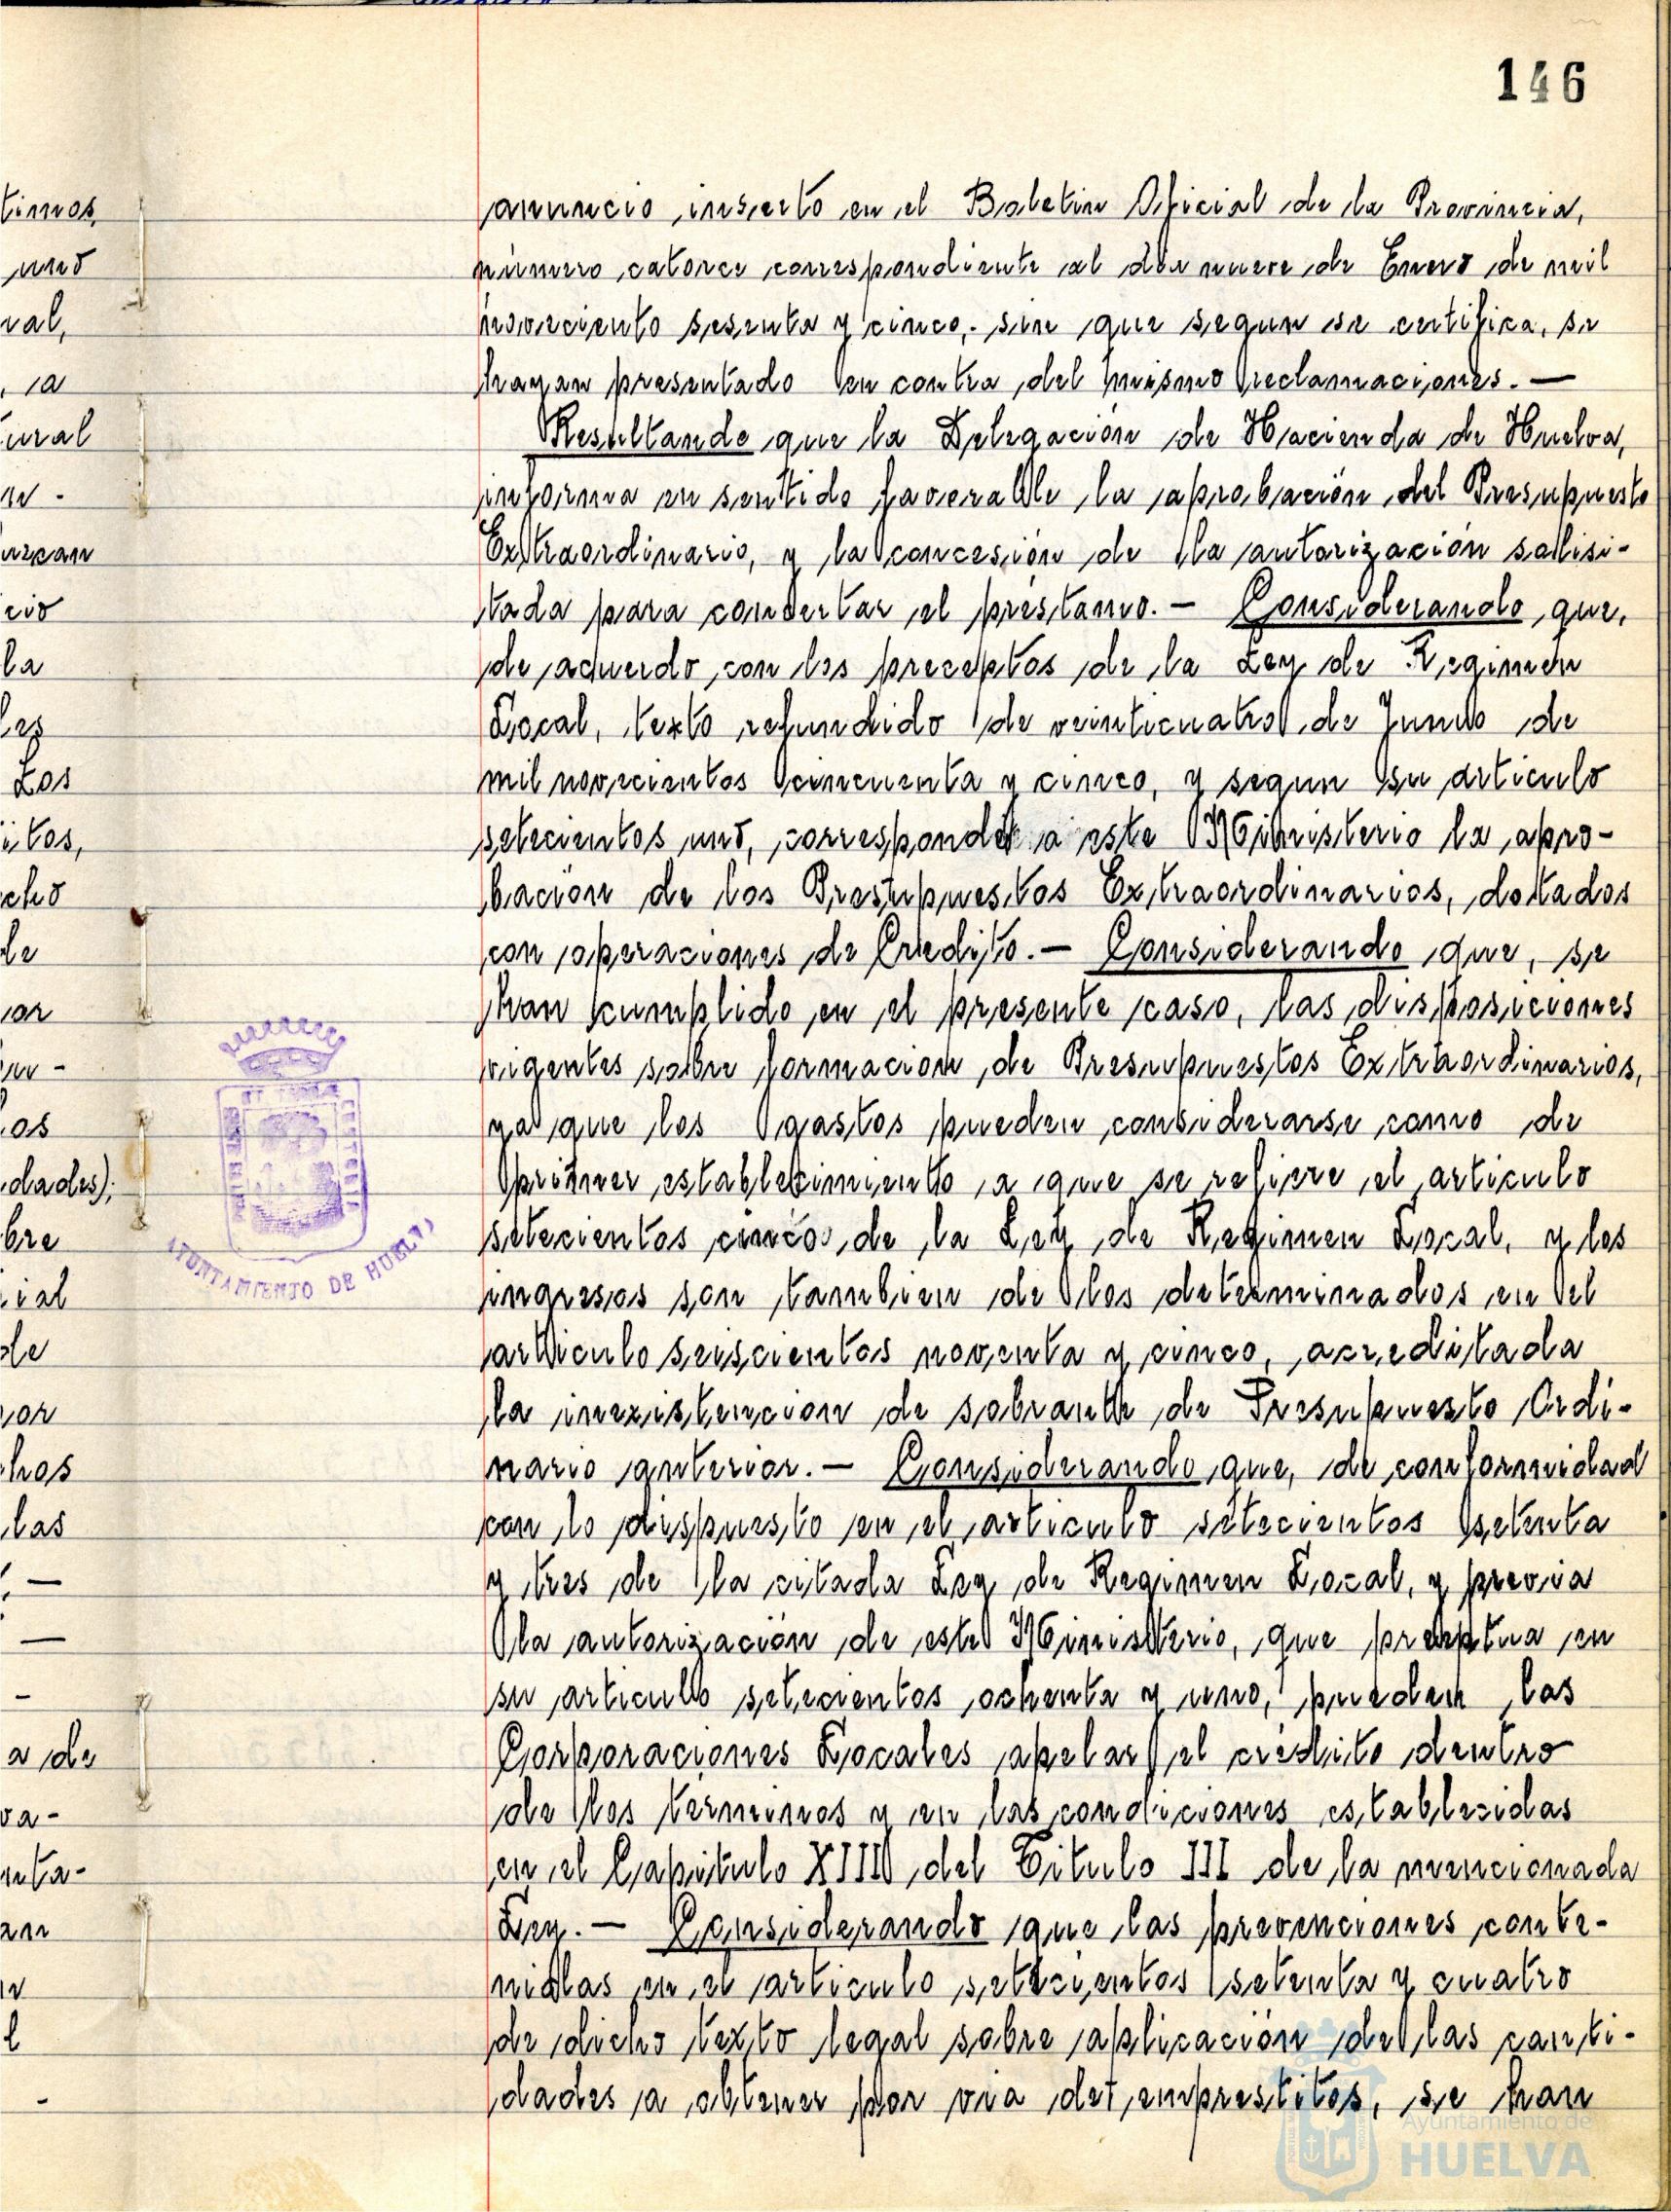 146
anuncio inserto en el Boletin Oficial de la Provincia,
número catorce correspondiente al dia nueve de Enero de mil
noveciento sesenta y cinco,. sin que segun se certifica, se
hayan presentado en contra del mismo reclamaciones. —
Resultando que la Delegación de Hacienda de Huelva,
informa en sentido favorable la aprobación del Presupuesto
Extraordinario, y la concesión de la autorización sollisi-
tada para concertar el préstamo. — Considerando que,
de acuerdo con los preceptos de la Ley de Regimen
Local, texto refundido de veinticuatro de Junio de
mil novecientos cincuenta y cinco, y segun su articulo
setecientos uno, corresponde a este Ministerio la apro-
bación de los Presupuestos Extraordinarios, dotados
con operaciones de Credito. — Considerando que, se
han cumplido en el presente caso, las disposiciones
vigentes sobre formacion de Presupuestos Extraordinarios,
ya que los gastos pueden considerarse como de
primer establecimiento a que se refiere el articulo
setecientos cinco de la Ley de Regimen Local, y los
ingresos son tambien de los determinados en el
articulo seiscientos noventa y cinco, acreditada
la inexistencion de sobrante de Presupuesto Ordi-
nario anterior. — Considerando que, de conformidad
con lo dispuesto en el articulo setecientos setenta
y tres de la citada Ley de Regimen Local, y previa
la autorización de este Ministerio, que preceptua en
su articulo setecientos ochenta y uno, pueden las
Corporaciones Locales apelar el crédito dentro
de los terminos y en las condiciones establecidas
en el Capitulo XIIII del Titulo III de la mencionada
Ley. — Considerando que las prevenciones conte-
nidas en el articulo setecientos setenta y cuatro
de dicho texto legal sobre aplicación de las canti-
dades a obtener por via de emprestitos, se han
timos,
uno
val,
, ia
ural
n -
urcan
cio
la
les
Los
itos,
cho
le
ar
n -
los
dades);
bre
ial
de
hos
las
—
—
-
a de
va-
nta-
l
-
AYUNTAMIENTO DE HUELVA
Ayuntamiento de
HUELVA